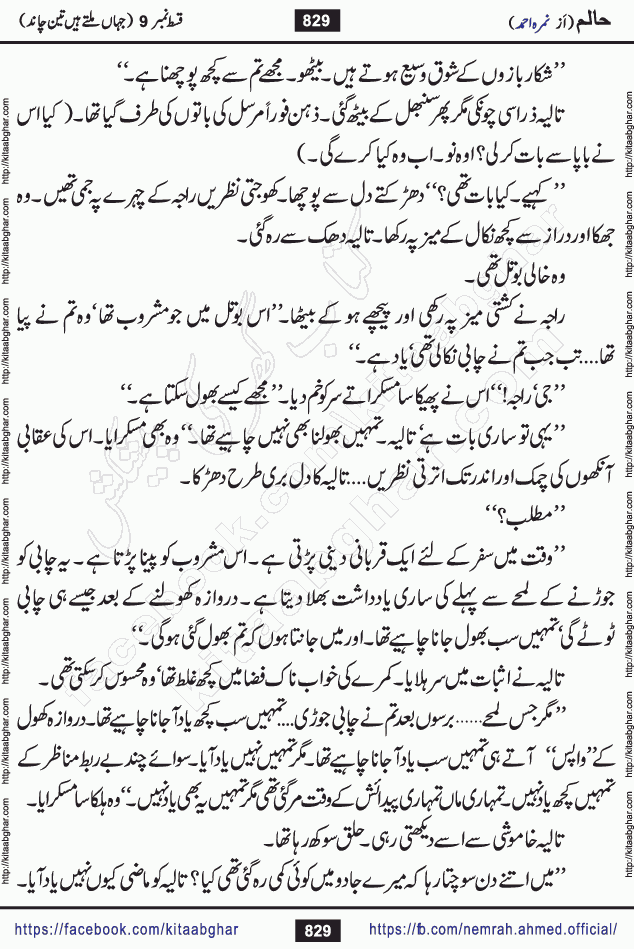 حالم (از نمرہ احمد) 829 قسط نمبر 9 (جہاں ملتے ہیں تین چاند)
’’شکار بازوں کے شوق وسیع ہوتے ہیں۔ بیٹھو۔ مجھے تم سے کچھ پوچھنا ہے۔‘‘
تالیہ ذرا سی چونکی مگر پھر سنبھل کے بیٹھ گئی۔ ذہن فوراً مرسل کی باتوں کی طرف گیا تھا۔ (کیا اس
نے باپا سے بات کر لی؟ اوہ نو۔ اب وہ کیا کرے گی۔)
’’کہیے۔ کیا بات تھی؟‘‘ دھڑکتے دل سے پوچھا۔ کھوجتی نظریں راجہ کے چہرے پہ جمی تھیں۔ وہ
جھکا اور دراز سے کچھ نکال کے میز پہ رکھا۔ تالیہ دھک سے رہ گئی۔
وہ خالی بوتل تھی۔
راجہ نے کشتی میز پہ رکھی اور پیچھے ہو کے بیٹھا۔ ’’اس بوتل میں جو مشروب تھا‘ وہ تم نے پیا
تھا.... تب جب تم نے چابی نکالی تھی‘ یاد ہے۔‘‘
’’جی‘ راجہ!‘‘ اس نے پھیکا سا مسکراتے سر کو خم دیا۔ ’’مجھے کیسے بھول سکتا ہے۔‘‘
’’یہی تو ساری بات ہے‘ تالیہ۔ تمہیں بھولنا بھی نہیں چاہیے تھا۔‘‘ وہ بھی مسکرایا۔ اس کی عقابی
آنکھوں کی چمک اور اندر تک اترتی نظریں.... تالیہ کا دل بری طرح دھڑکا۔
’’مطلب؟‘‘
’’وقت میں سفر کے لئے ایک قربانی دینی پڑتی ہے۔ اس مشروب کو پینا پڑتا ہے۔ یہ چابی کو
جوڑنے کے لمحے سے پہلے کی ساری یادداشت بھلا دیتا ہے۔ دروازہ کھولنے کے بعد جیسے ہی چابی
ٹوٹے گی‘ تمہیں سب بھول جانا چاہیے تھا۔ اور میں جانتا ہوں کہ تم بھول گئی ہوگی۔‘‘
تالیہ نے اثبات میں سر ہلایا۔ کمرے کی خواب ناک فضا میں کچھ غلط تھا‘ وہ محسوس کر سکتی تھی۔
’’مگر جس لمحے...... برسوں بعد تم نے چابی جوڑی.... تمہیں سب کچھ یاد آ جانا چاہیے تھا۔ دروازہ کھول
کے ’’واپس‘‘ آتے ہی تمہیں سب یاد آ جانا چاہیے تھا۔ مگر تمہیں نہیں یاد آیا۔ سوائے چند بے ربط مناظر کے
تمہیں کچھ یاد نہیں۔ تمہاری ماں تمہاری پیدائش کے وقت مر گئی تھی مگر تمہیں یہ بھی یاد نہیں۔‘‘ وہ ہلکا سا مسکرایا۔
تالیہ خاموشی سے اسے دیکھتی رہی۔ حلق سوکھ رہا تھا۔
’’میں اتنے دن سوچتا رہا کہ میرے جادو میں کوئی کمی رہ گئی تھی کیا؟ تالیہ کو ماضی کیوں نہیں یاد آیا۔
https://facebook.com/kitaabghar 829 https://fb.com/nemrah.ahmed.official/
http://kitaabghar.com
کتاب گھر کی پیشکش
facebook.com/kitaabghar
kitaabghar.com